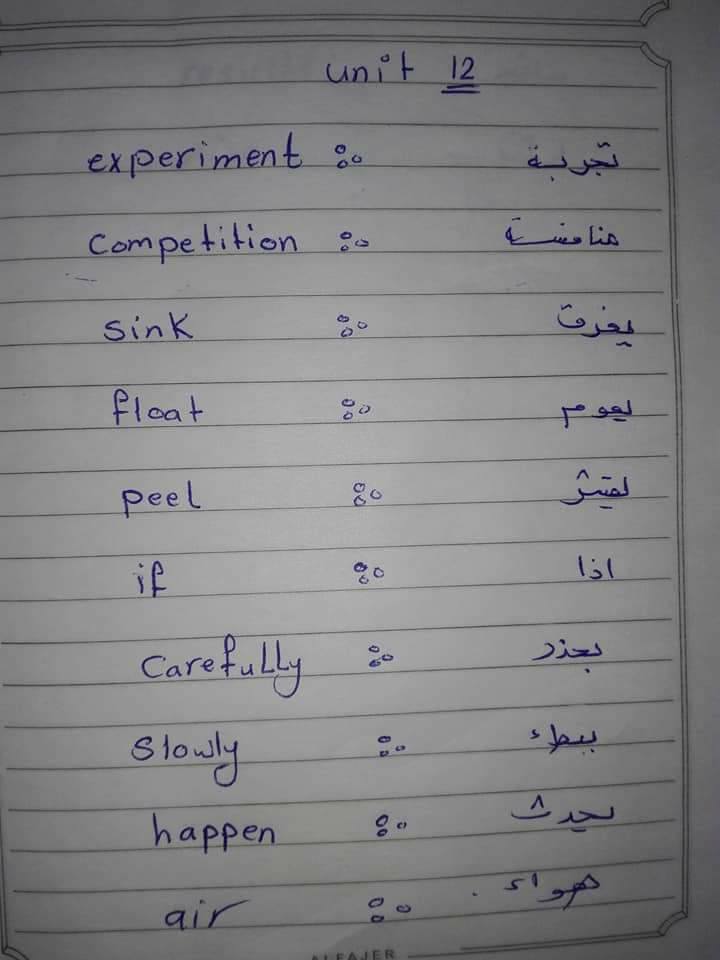 unit 12
experiment : تجربة
Competition : منافسة
sink : يغرق
float : يعوم
peel : يقشر
if : اذا
Carefully : بحذر
Slowly : ببطء
happen : يحدث
air : هواء.
ALFAJER